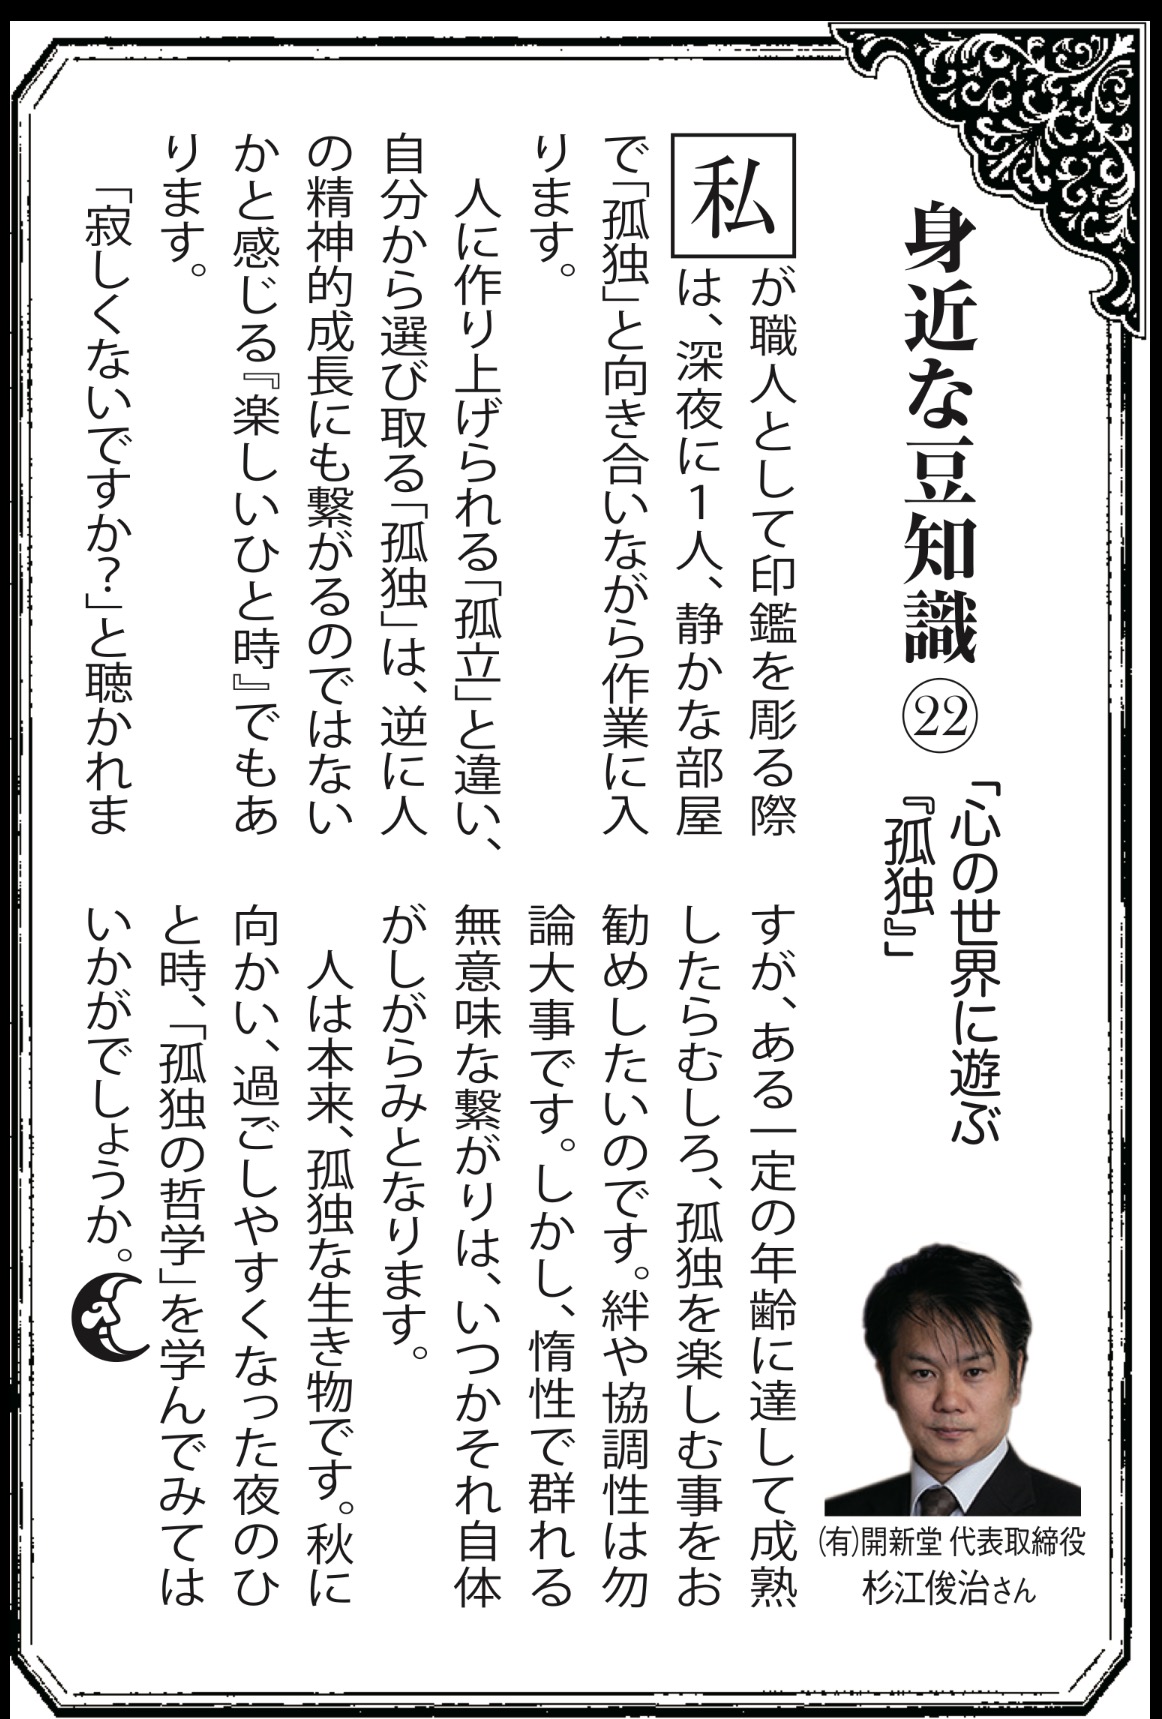 身近な豆知識㉒
「心の世界に遊ぶ
『孤独』」
(有)開新堂 代表取締役
杉江俊治さん
私が職人として印鑑を彫る際
は、深夜に1人、静かな部屋
で「孤独」と向き合いながら作業に入
ります。
人に作り上げられる「孤立」と違い、
自分から選び取る「孤独」は、逆に人
の精神的成長にも繋がるのではない
かと感じる『楽しいひと時』でもあ
ります。
「寂しくないですか?」と聴かれま
すが、ある一定の年齢に達して成熟
したらむしろ、孤独を楽しむ事をお
勧めしたいのです。絆や協調性は勿
論大事です。しかし、惰性で群れる
無意味な繋がりは、いつかそれ自体
がしがらみとなります。
人は本来、孤独な生き物です。秋に
向かい、過ごしやすくなった夜のひ
と時、「孤独の哲学」を学んでみては
いかがでしょうか。